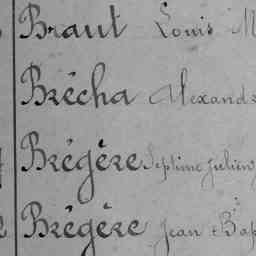 Braut Louis M
Brécha Alexand
Brégère Septime Julien
Brégère Jean Bap